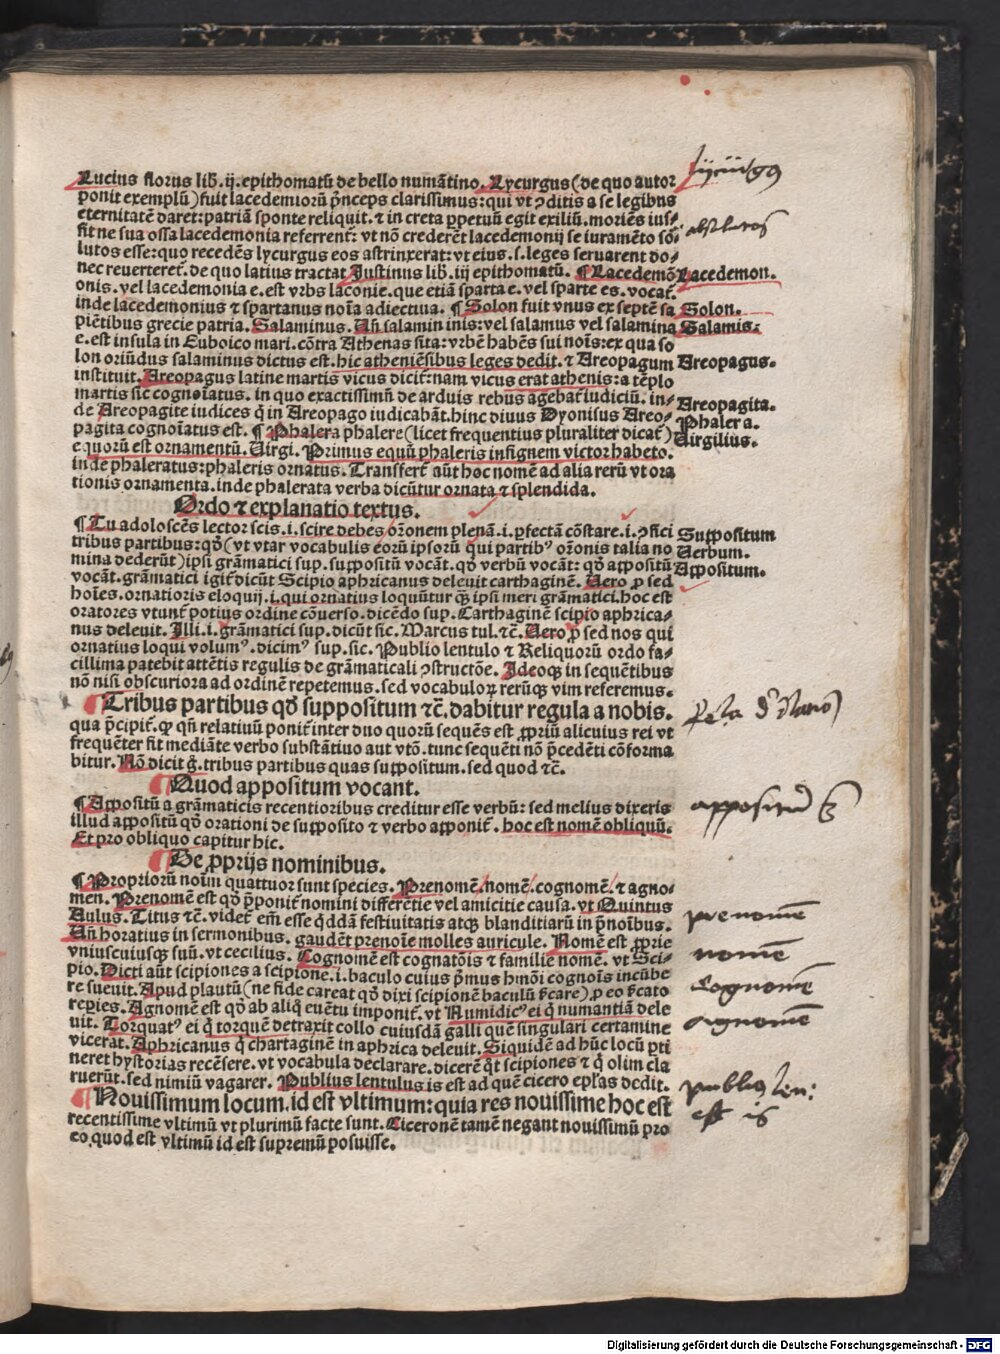 Lucius florus lib̄. ij. epithomatū de bello numātino. Lycurgus (de quo autor
ponit exemplū) fuit lacedemioꝝ pͥnceps clarissimus: qui vt ↄditis a se legibus
eternitatē daret: patriā sponte reliquit. ⁊ in creta ꝑpetuū egit exiliū. moriēs ius⸗
sit ne sua ossa lacedemonia referrent᷑: vt nō crederēt lacedemonij se iuramēto so⸗
lutos esse: quo recedēs lycurgus eos astrinxerat: vt eius .s. leges seruarent do⸗
nec reuerteret᷑. de quo latius tractat Justinus lib̄. iij epithomatū. ¶ Lacedemō
onis. vel lacedemonia e. est vrbs laconie. que etiā sparta e. vel sparte es. vocat᷑.
inde lacedemonius ⁊ spartanus noīa adiectiua. ¶ Solon fuit vnus ex septē sa
piētibus grecie patria. Salaminus. Añ salamin inis: vel salamus vel salamina
e. est insula in Euboico mari. cōtra Athenas sita: vrbē habēs sui noīs: ex qua so
lon oriūdus salaminus dictus est. hic atheniēsibus leges dedit. ⁊ Areopagum
instituit. Areopagus latine martis vicus dicit᷑: nam vicus erat athenis: a tēplo
martis sic cognoīatus. in quo exactissimū de arduis rebus agebat᷑ iudiciū. in⸗
de Areopagite iudices q̇ in Areopago iudicabāt. hinc diuus Dyonisius Areo⸗
pagita cognoīatus est. ¶ Phalera phalere (licet frequentius pluraliter dicat᷑)
equoꝝ est ornamentū. Virgi. Primus equū phaleris insignem victor habeto.
inde phaleratus: phaleris ornatus. Transfert᷑ aūt hoc nomē ad alia rerū vt ora
tionis ornamenta. inde phalerata verba dicūtur ornata ⁊ splendida.
Ordo ⁊ explanatio textus.
¶ Tu adoloscēs lector scis .i. scire debes oꝛonem plenā .i. ꝑfectā cōstare .i. ↄfici
tribus partibus: qd̄ (vt vtar vocabulis eorū ipsorū qui partibꝰ oꝛonis talia no
mina dederūt) ipsi grāmatici sup. suppositū vocāt. qd̄ verbū vocāt: qd̄ appositū
vocāt. grāmatici igit᷑ dicūt Scipio aphricanus deleuit carthaginē. Uero ꝓ sed
hoīes. ornatioris eloquij .i. qui ornatius loquūtur q̄ꝫ ipsi meri grāmatici. hoc est
oratores vtunt᷑ potius ordine cōuerso. dicēdo sup. Carthaginē scipio aphrica⸗
nus deleuit. Illi .i. grāmatici sup. dicūt sic. Marcus tul. ⁊c̄. Uero ꝓ sed nos qui
ornatius loqui volumꝰ. dicimꝰ sup. sic. Publio lentulo ⁊ Reliquorū ordo fa⸗
cillima patebit attētis regulis de grāmaticali ↄstructōe. Ideoqꝫ in sequētibus
nō nisi obscuriora ad ordinē repetemus. sed vocabuloꝝ rerūqꝫ vim referemus.
¶ Tribus partibus qd̄ suppositum ⁊c̄. dabitur regula a nobis.
qua pͥcipit᷑. ꝙ qn̄ relatiuū ponit᷑ inter duo quorū sequēs est ꝓpriū alicuius rei vt
frequēter fit mediāte verbo substātiuo aut vtō. tunc sequēti nō p̄cedēti cōforma
bitur. Nō dicit g̊. tribus partibus quas suppositum. sed quod ⁊c̄.
¶ Quod appositum vocant.
¶ Appositū a grāmaticis recentioribus creditur esse verbū: sed melius dixeris
illud appositū qd̄ orationi de supposito ⁊ verbo apponit᷑. hoc est nomē obliquū.
Et pro obliquo capitur hic.
¶ De ꝓprijs nominibus.
¶ Propriorū noīm quattuor sunt species. Prenomē/ nomē/ cognomē/ ⁊ agno⸗
men. Prenomē est qd̄ p̄ponit᷑ nomini differētie vel amicitie causa. vt Quintus
Aulus. Titus ⁊c̄. videt᷑ em̄ esse q̇ddā festiuitatis atqꝫ blanditiarū in p̄noībus.
Añ horatius in sermonibus. gaudēt prenoīe molles auricule. Nomē est ꝓprie
vniuscuiusqꝫ suū. vt cecilius. Cognomē est cognatōis ⁊ familie nomē. vt Sci⸗
pio. Dicti aūt scipiones a scipione .i. baculo cuius pͥmus hmōi cognoīs incūbe
re sueuit. Apud plautū (ne fide careat qd̄ dixi scipionē baculū ſ̄care) ꝓ eo ſ̄cato
reꝑies. Agnomē est qd̄ ab aliq̊ euētu imponit᷑. vt Numidicꝰ ei q̇ numantiā dele
uit. Torquatꝰ ei q̇ torquē detraxit collo cuiusdā galli quē singulari certamine
vicerat. Aphricanus q̇ chartaginē in aphrica deleuit. Siquidē ad hūc locū ꝑti
neret hystorias recēsere. vt vocabula declarare. dicerē q̊t scipiones ⁊ q̇ olim cla
ruerūt. sed nimiū vagarer. Publius lentulus is est ad quē cicero eplās dedit.
¶ Nouissimum locum. id est vltimum: quia res nouissime hoc est
recentissime vltimū vt plurimū facte sunt. Ciceronē tamē negant nouissimū pro
eo quod est vltimū id est supremū posuisse.
lycurgꝰ
absolutos
Lacedemon.
Solon.
Salamis.
Areopagus.
Areopagita.
Phalera.
Virgilius.
Suppositum
Verbum.
Appositum.
appositū
prenomē
nomē
Cognomē
Agnomē
publiꝰ len:
est is
Digitalisierung gefördert durch die Deutsche Forschungsgemeinschaft - DFG